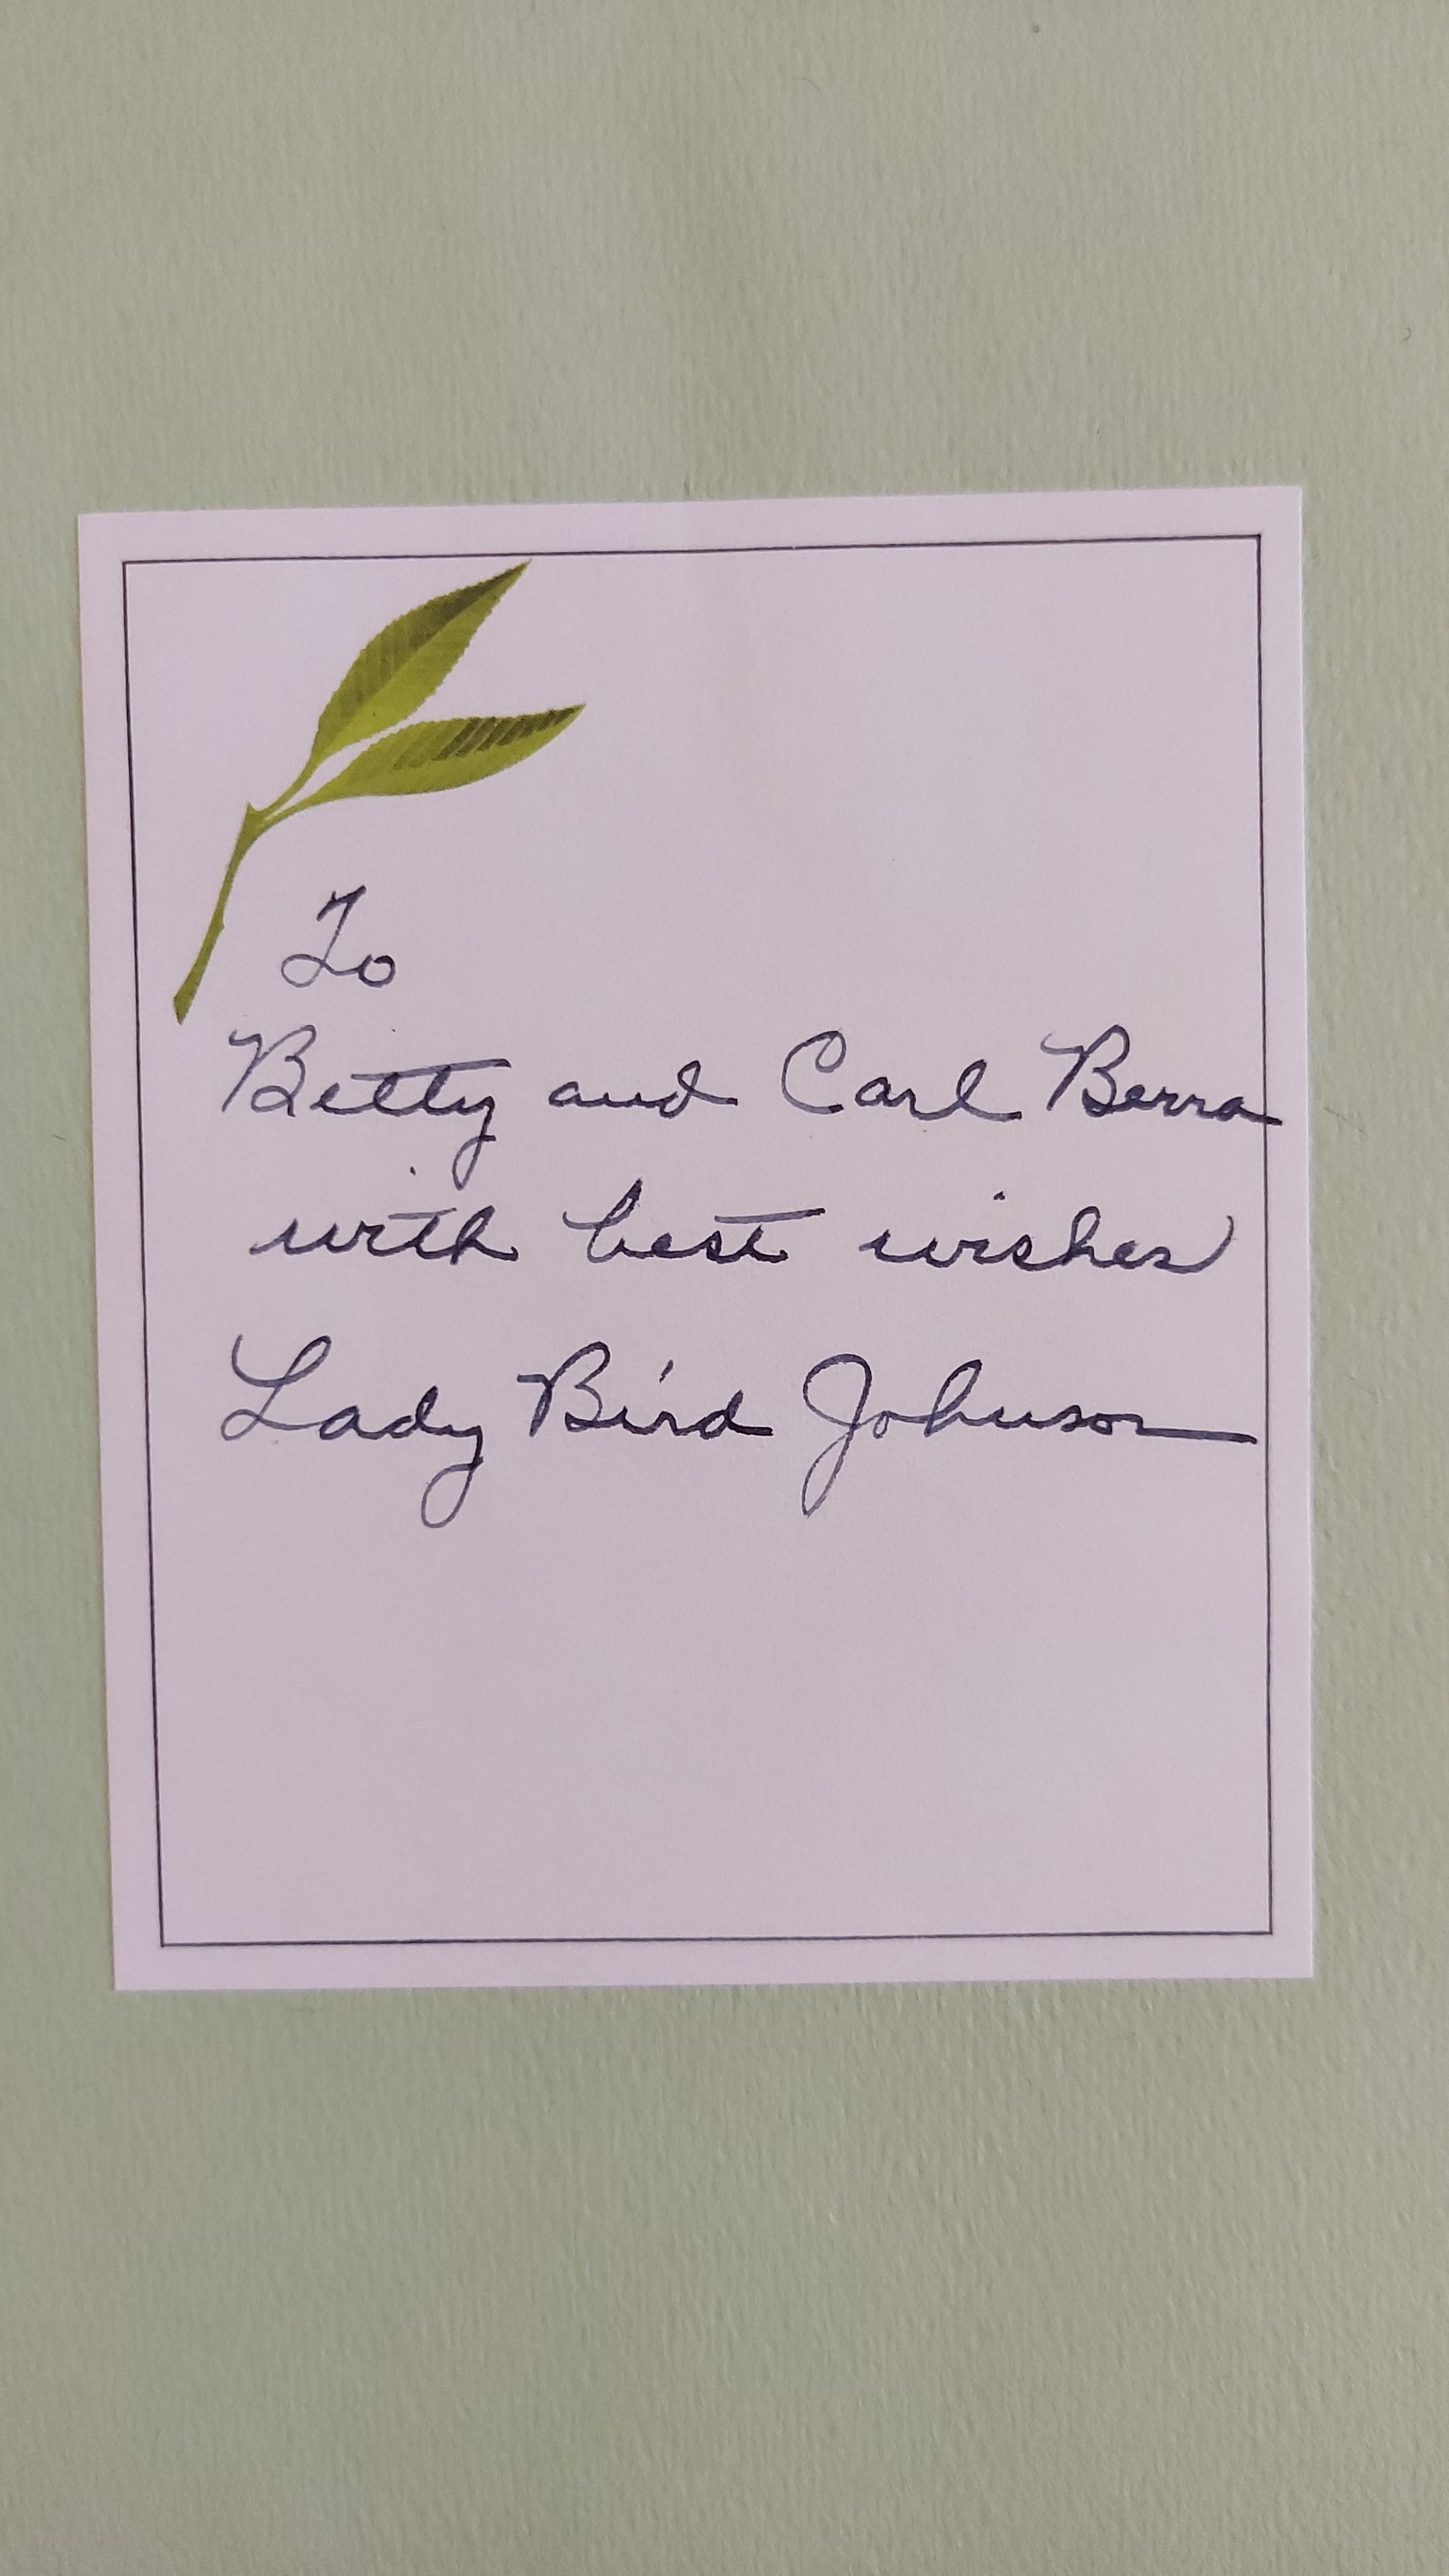 To
Betty and Carl Berra
with best wishes
Lady Bird Johnson